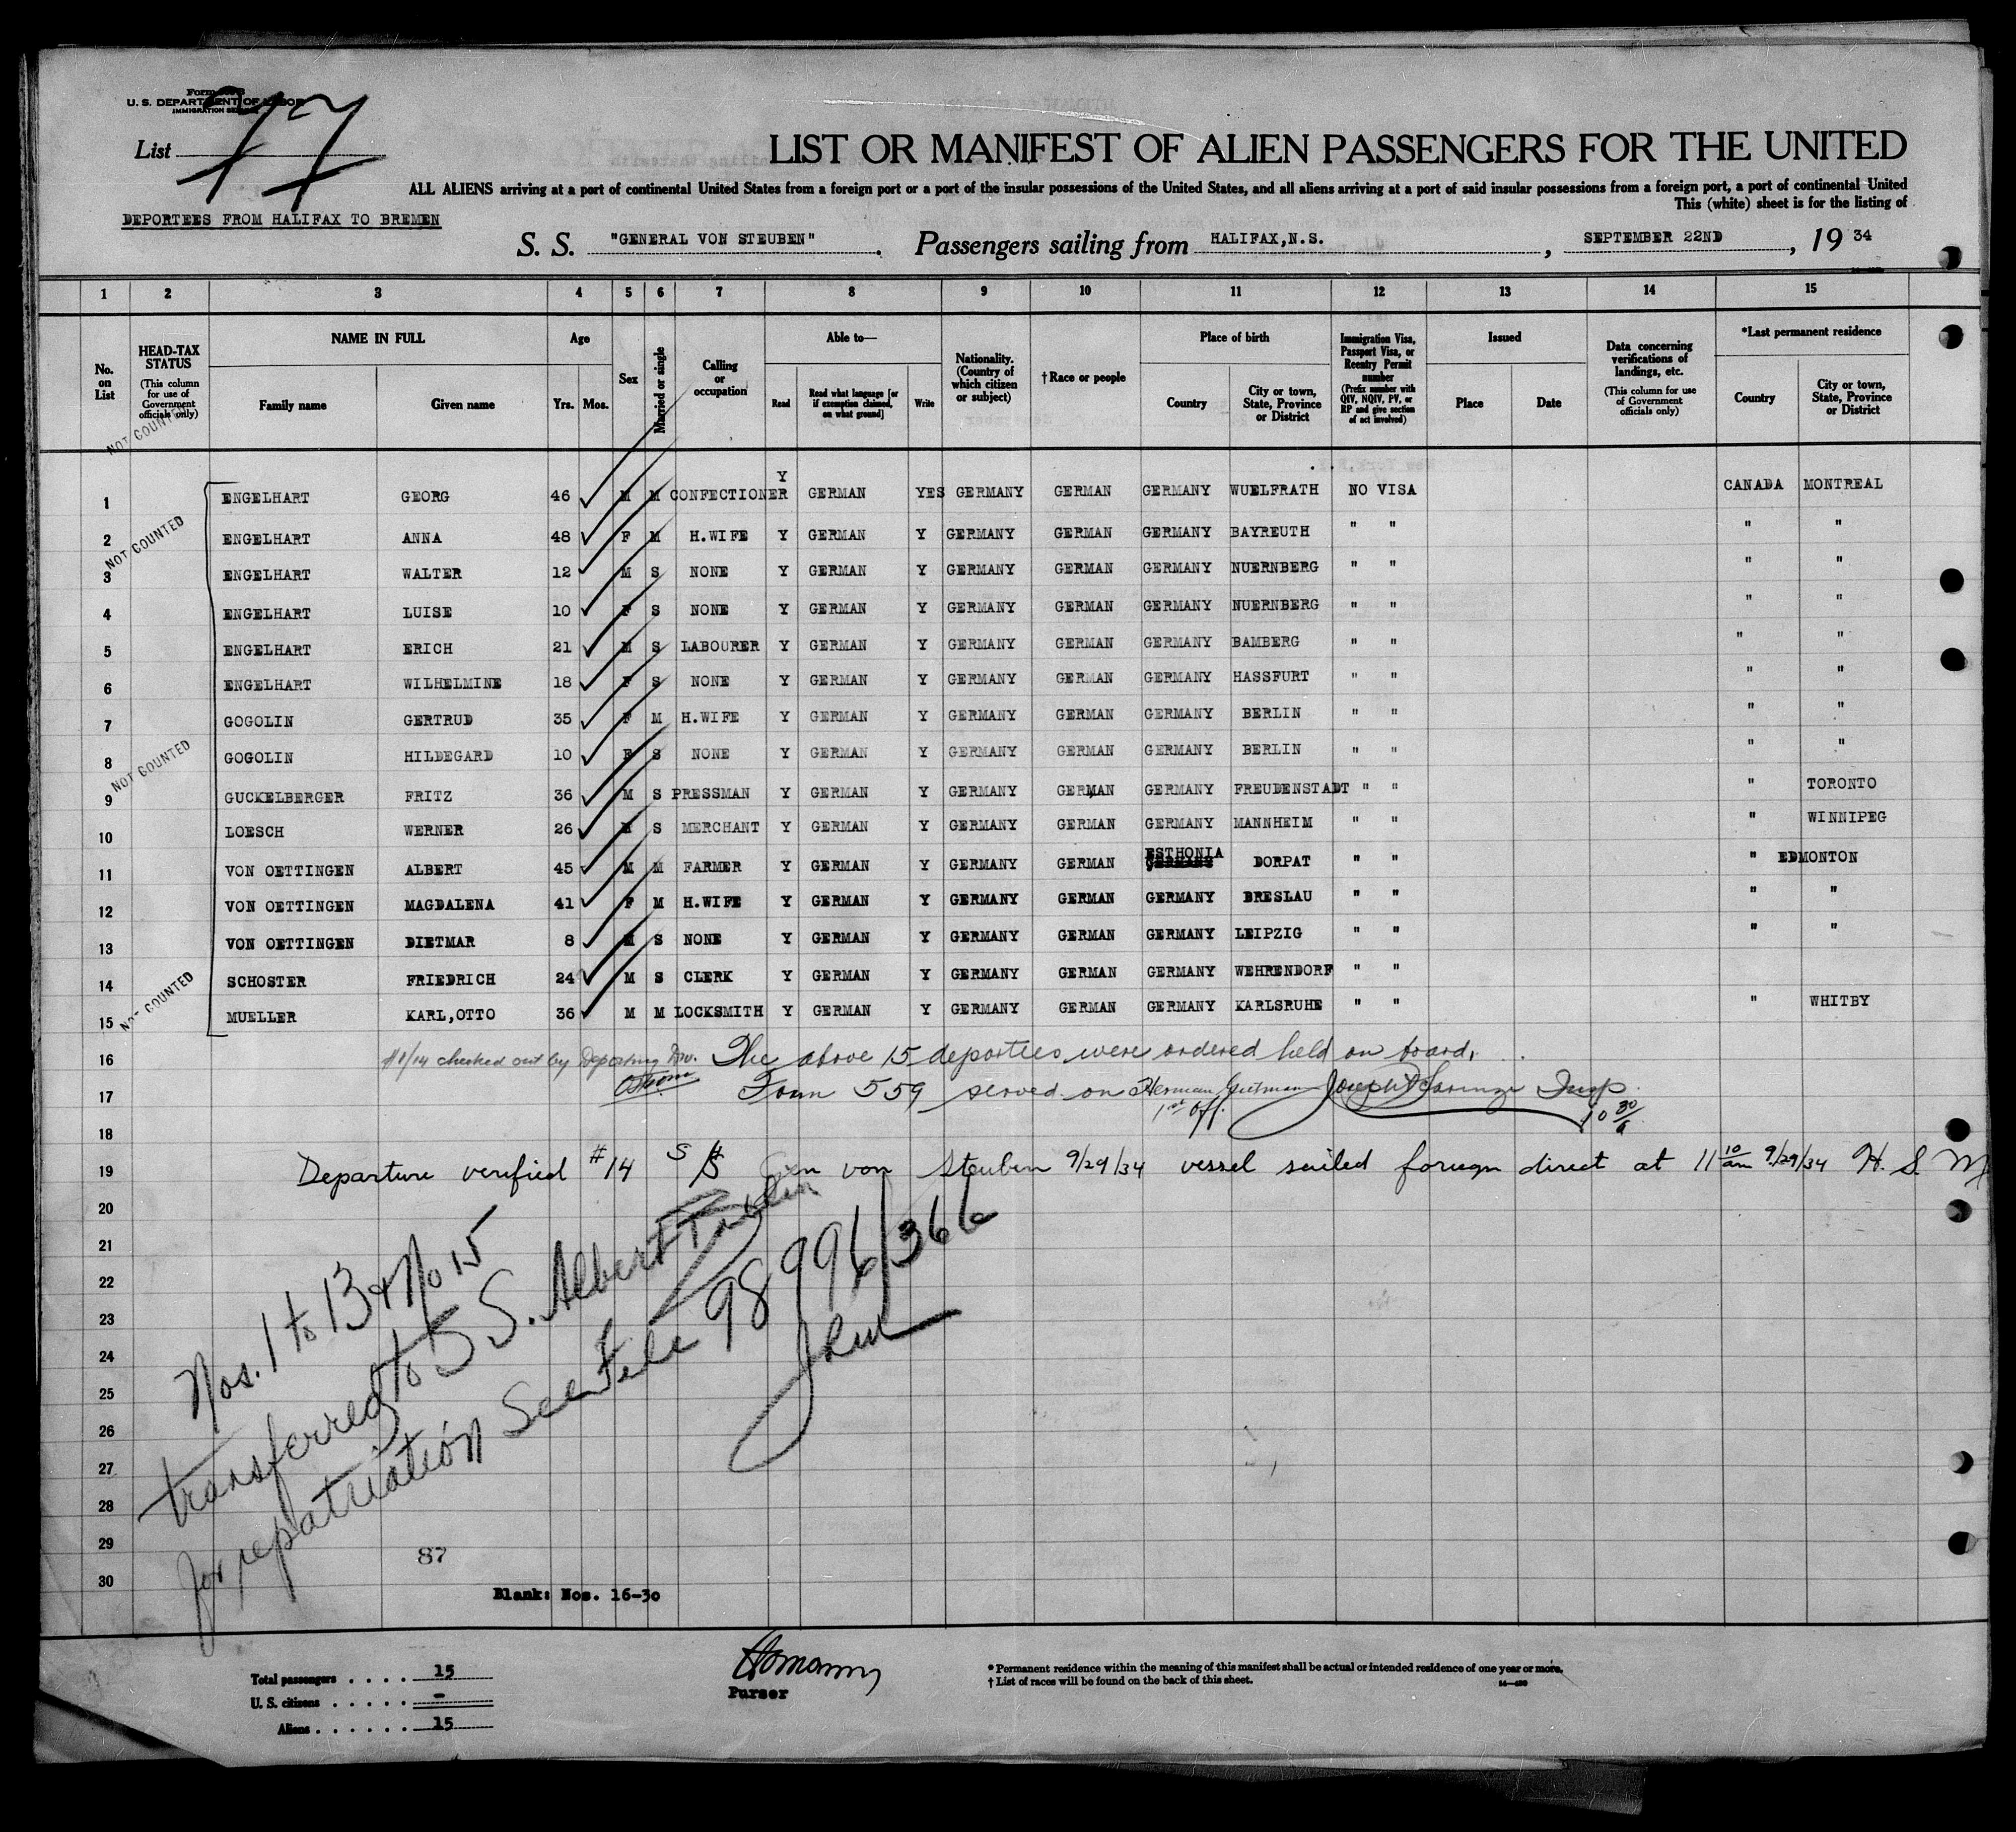 U. S. DEPARTMENT OF LABOR
IMMIGRATION SERVICE
List 77
LIST OR MANIFEST OF ALIEN PASSENGERS FOR THE UNITED
ALL ALIENS arriving at a port of continental United States from a foreign port or a port of the insular possessions of the United States, and all aliens arriving at a port of said insular possessions from a foreign port, a port of continental United
This (white) sheet is for the listing of
DEPORTEES FROM HALIFAX TO BREMEN
S. S. "GENERAL VON STEUBEN". Passengers sailing from HALIFAX,N.S., SEPTEMBER 22ND, 19 34
1 2 3 4 5 6 7 8 9 10 11 12 13 14 15
No. on List
HEAD-TAX STATUS (This column for use of Government officials only)
NAME IN FULL Family name Given name
Age Yrs. Mos.
Sex
Married or single
Calling or occupation
Able to— Read Read what language [or if exemption claimed, on what ground] Write
Nationality. (Country of which citizen or subject)
†Race or people
Place of birth Country City or town, State, Province or District
Immigration Visa, Passport Visa, or Reentry Permit number (Prefix number with QIV, NQIV, PV, or RP and give section of act involved)
Issued Place Date
Data concerning verifications of landings, etc. (This column for use of Government officials only)
*Last permanent residence Country City or town, State, Province or District
NOT COUNTED
1 ENGELHART GEORG 46 M M CONFECTIONER Y GERMAN YES GERMANY GERMAN GERMANY WUELFRATH NO VISA CANADA MONTREAL
NOT COUNTED
2 ENGELHART ANNA 48 F M H.WIFE Y GERMAN Y GERMANY GERMAN GERMANY BAYREUTH " " " "
3 ENGELHART WALTER 12 M S NONE Y GERMAN Y GERMANY GERMAN GERMANY NUERNBERG " " " "
4 ENGELHART LUISE 10 F S NONE Y GERMAN Y GERMANY GERMAN GERMANY NUERNBERG " " " "
5 ENGELHART ERICH 21 M S LABOURER Y GERMAN Y GERMANY GERMAN GERMANY BAMBERG " " " "
6 ENGELHART WILHELMINE 18 F S NONE Y GERMAN Y GERMANY GERMAN GERMANY HASSFURT " " " "
7 GOGOLIN GERTRUD 35 F M H.WIFE Y GERMAN Y GERMANY GERMAN GERMANY BERLIN " " " "
NOT COUNTED
8 GOGOLIN HILDEGARD 10 F S NONE Y GERMAN Y GERMANY GERMAN GERMANY BERLIN " " " "
9 GUCKELBERGER FRITZ 36 M S PRESSMAN Y GERMAN Y GERMANY GERMAN GERMANY FREUDENSTADT " " " TORONTO
10 LOESCH WERNER 26 M S MERCHANT Y GERMAN Y GERMANY GERMAN GERMANY MANNHEIM " " " WINNIPEG
11 VON OETTINGEN ALBERT 45 M M FARMER Y GERMAN Y GERMANY GERMAN ESTHONIA GERMANY DORPAT " " " EDMONTON
12 VON OETTINGEN MAGDALENA 41 F M H.WIFE Y GERMAN Y GERMANY GERMAN GERMANY BRESLAU " " " "
13 VON OETTINGEN DIETMAR 8 M S NONE Y GERMAN Y GERMANY GERMAN GERMANY LEIPZIG " " " "
14 SCHOSTER FRIEDRICH 24 M S CLERK Y GERMAN Y GERMANY GERMAN GERMANY WEHRENDORF " "
NOT COUNTED
15 MUELLER KARL,OTTO 36 M M LOCKSMITH Y GERMAN Y GERMANY GERMAN GERMANY KARLSRUHE " " " WHITBY
16 #1/14 checked out by Deporting Div. The above 15 deportees were ordered held on board.
17 Form 559 served on Herman Gutman Joseph Insp.
1st Off. 10 30/a
18
19 Departure verified #14 SS Gen von Steuben 9/29/34 vessel sailed foreign direct at 11 10/am 9/29/34 H. S. M
20
21
22
23
24
25
26
27
28
29
30
Nos. 1 to 13 & No 15
transferred to S S. Albert Ballin
for repatriation See File 98996/366
87
Blank: Nos. 16-30
Total passengers . . . . 15
U. S. citizens . . . . . -
Aliens . . . . . . 15
Homann
Purser
* Permanent residence within the meaning of this manifest shall be actual or intended residence of one year or more.
† List of races will be found on the back of this sheet.